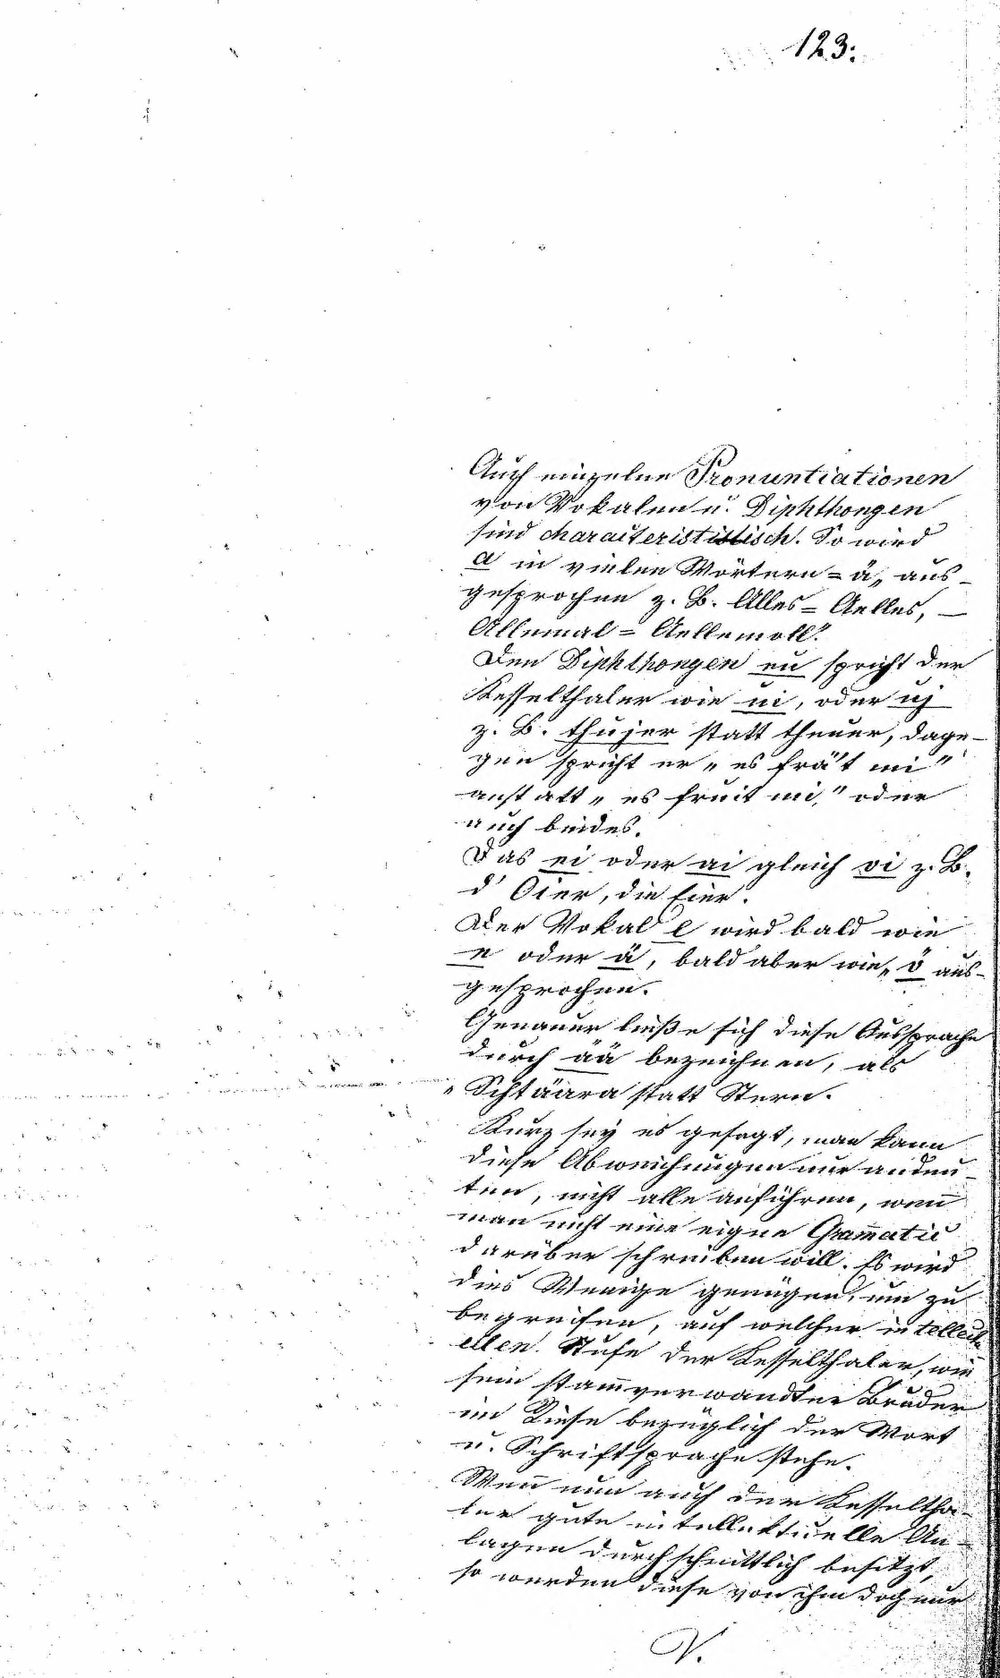 123:
Auch einzelne Pronuntiationen
von Vokalen u. Diphthongen
sind charakteristisch. So wird
a in vielen Wörtern = ä, aus-
gesprochen z. B. Alles = Aelles, —
Allemal = Aellemoll.
Den Diphthongen eu spricht der
Kesselthaler wie ui, oder uj
z. B. thujer statt theuer, dage-
gen spricht er „es frä't mi"
anstatt „es fruit mi," oder
auch beides.
Das ei oder ai gleich oi z. B.
d' Oier, die Eier.
Der Vokal e wird bald wie
e oder ä, bald aber wie „ö aus-
gesprochen.
Genauer ließe sich diese Aussprache
durch ää bezeichnen, als
„Schtäära statt Stern.
Kurz sey es gesagt, man kann
diese Abweichungen nur andeu-
ten, nicht alle anführen, wen̄
man nicht eine eigne Gram̄atic
darüber schreiben will. Es wird
dies Wenige genügen, um zu
begreifen, auf welcher intellectu
ellen Stufe der Kesselthaler, wie
sein stam̄verwandter Bruder
im Riese bezüglich der Wort
u. Schriftsprache stehe.
Wen̄ nun auch der Kesseltha-
ler gute intellektuelle An-
lagen durchschnittlich besitzt,
so werden diese von ihm doch nur
V.